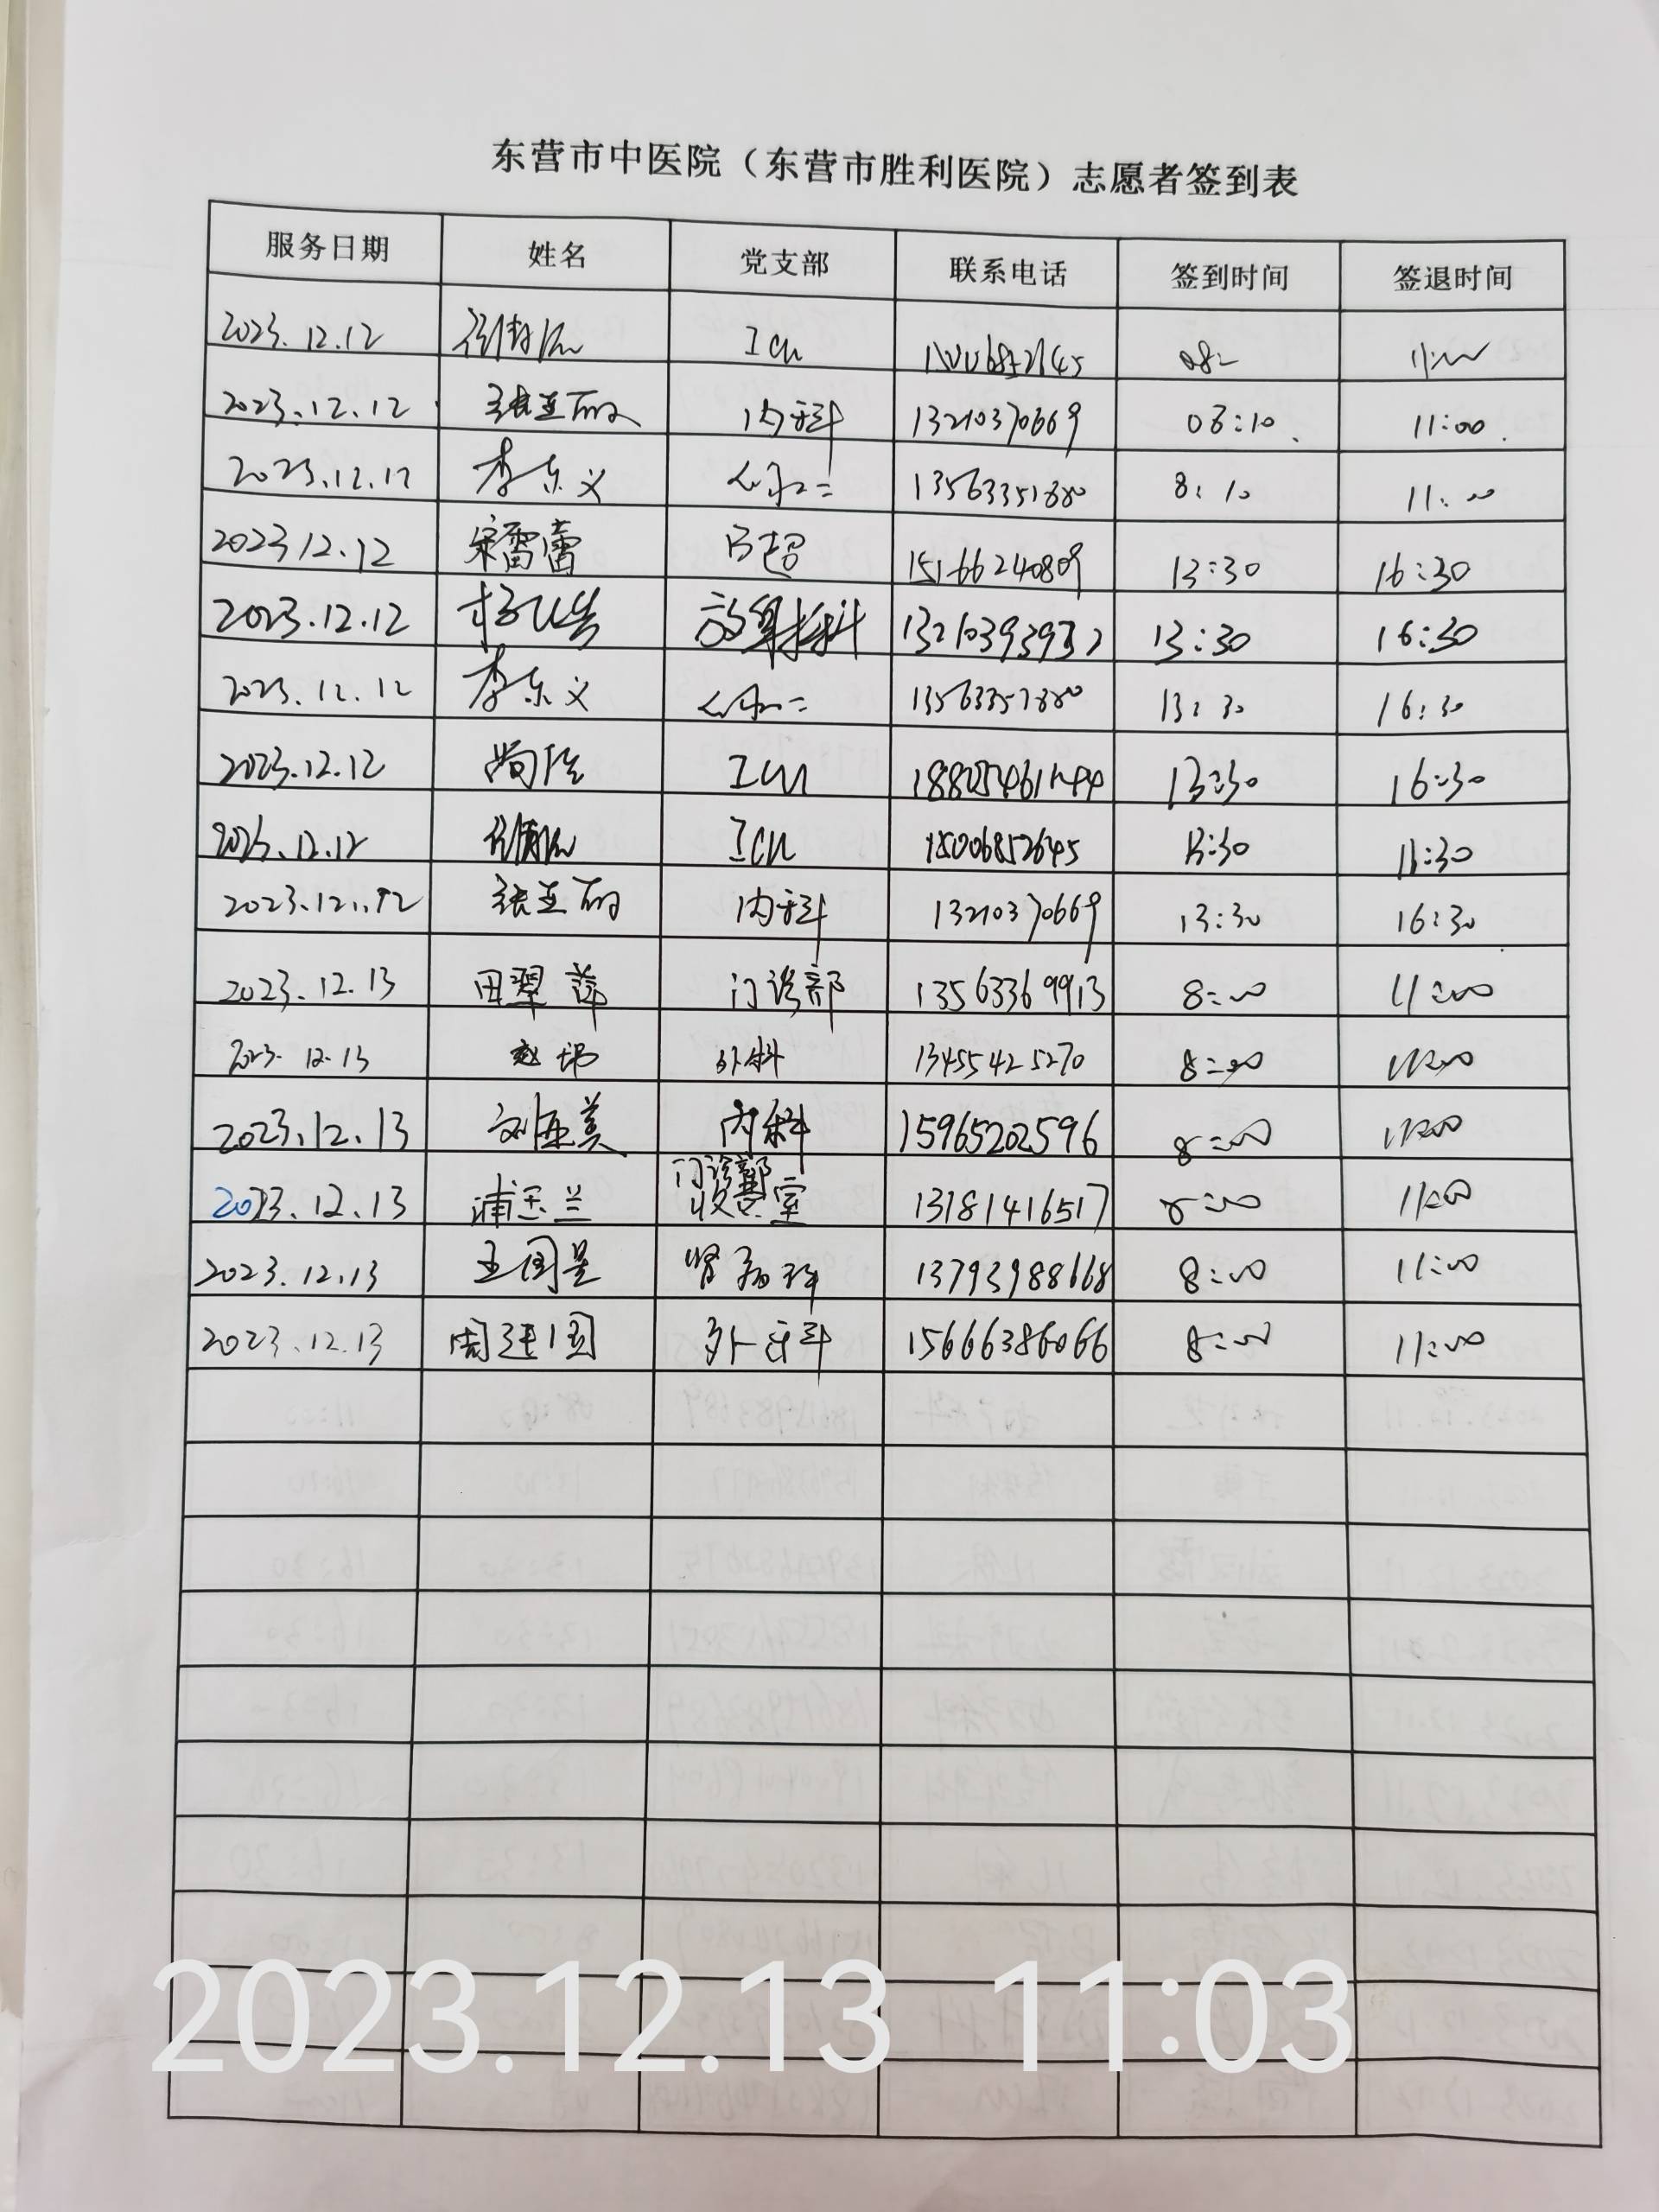 东营市中医院（东营市胜利医院）志愿者签到表
服务日期 姓名 党支部 联系电话 签到时间 签退时间
2023.12.12 ICU
2023.12.12 张亚丽 内科 13210370669 08:10 11:00
2023.12.12 李东义 13563351880 8:10 11:00
2023.12.12 宋雷蕾 B超 15166240809 13:30 16:30
2023.12.12 放射科 13:30 16:30
2023.12.12 李东义 13:30 16:30
2023.12.12 ICU 13:30 16:30
2023.12.12 ICU 15006852645 13:30
2023.12.12 张亚丽 内科 13210370669 13:30 16:30
2023.12.13 田翠萍 门诊部 13563369913 8:00 11:00
2023.12.13 外科 13455425270 8:00 11:00
2023.12.13 内科 15965202596 8:00 11:00
2023.12.13 浦玉兰 门诊部收费室 13181416517 8:00 11:00
2023.12.13 王国星 肾病科 13793988668 8:00 11:00
2023.12.13 周建国 外科 15666386066 8:00 11:00
2023.12.13 11:03